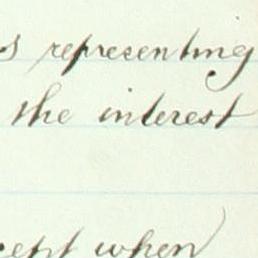 s representing
the interest
cept when